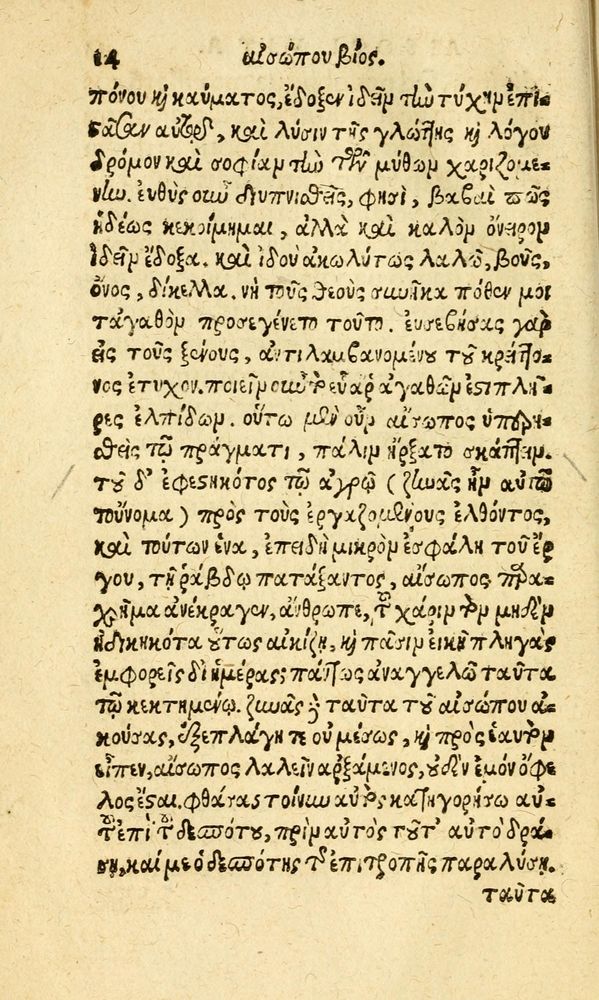 14 αἰσώπου βίος.
πόνου καὶ καύματος, ἔδοξεν ἰδεῖν τὴν τύχην ἐπι-
σᾶσαν αὐτῷ, καὶ λύσιν τῆς γλώττης καὶ λόγου
δρόμον καὶ σοφίαν τὴν τῶν μύθων χαριζομέ-
νην. εὐθὺς οὖν διυπνισθεὶς, φησὶ, βαβαὶ πῶς
ἡδέως κεκοίμημαι, ἀλλὰ καὶ καλὸν ὄνειρον
ἰδεῖν ἔδοξα. καὶ ἰδοὺ ἀκωλύτως λαλῶ, βοῦς,
ὄνος, δίκελλα. νὴ τοὺς θεοὺς συνῆκα πόθεν μοι
τἀγαθὸν προσεγένετο τοῦτο. εὐσεβήσας γὰρ
εἰς τοὺς ξένους, ἀντιλαμβανομένου τοῦ κρείττο-
νος ἔτυχον. ποιεῖν οὖν εὖ ἄρ' ἀγαθῶν ἐστι πλή-
ρες ἐλπίδων. οὕτω μὲν οὖν αἴσωπος ὑπερη-
σθεὶς τῷ πράγματι, πάλιν ἤρξατο σκάπτειν.
τοῦ δ' ἐφεστηκότος τῷ ἀγρῷ (ζηνᾶς ἦν αὐτῷ
τοὔνομα) πρὸς τοὺς ἐργαζομένους ἐλθόντος,
καὶ τούτων ἕνα, ἐπειδὴ μικρὸν ἐσφάλη τοῦ ἔρ-
γου, τῇ ῥάβδῳ πατάξαντος, αἴσωπος παρα-
χρῆμα ἀνέκραγεν, ἄνθρωπε, τοῦ χάριν τὸν μηδὲν
ἠδικηκότα οὕτως αἰκίζῃ, καὶ πᾶσιν εἰκῆ πληγὰς
ἐμφορεῖς δι' ἡμέρας; πάντως ἀναγγελῶ ταῦτα
τῷ κεκτημένῳ. ζηνᾶς δὲ ταῦτα τοῦ αἰσώπου ἀ-
κούσας, ἐξεπλάγη τε οὐ μέσως, καὶ πρὸς ἑαυτὸν
εἶπεν, αἴσωπος λαλεῖν ἀρξάμενος, οὐδὲν ἐμὸν ὄφε-
λος ἔσται. φθάσας τοίνυν αὐτὸς κατηγορήσω αὐ-
τοῦ ἐπὶ τοῦ δεσπότου, πρὶν αὐτὸς τοῦτ' αὐτὸ δρά-
σῃ, καί με ὁ δεσπότης τῆς ἐπιτροπῆς παραλύσῃ.
ταῦτα